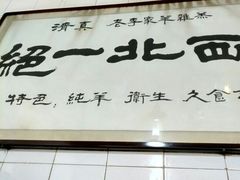 清真 老李家羊雜羔
西北一絕
特色,純羊 衛生 久食